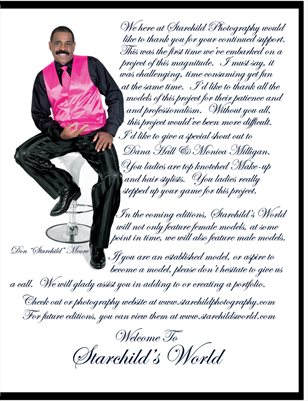 We here at Starchild Photography would
like to thank you for your continued support.
This was the first time we've embarked on a
project of this magnitude.  I must say, it
was challenging, time consuming yet fun
at the same time.  I'd like to thank all the
models of this project for their patience and
and professionalism.  Without you all,
this project would've been more difficult.
I'd like to give a special shout out to
Dana Hall & Monica Milligan.
You ladies are top knotched Make-up
and hair stylists.  You ladies really
stepped up your game for this project.
In the coming editions, Starchild's World
will not only feature female models, at some
point in time, we will also feature male models.
Don "Starchild" Moore
If you are an established model, or aspire to
become a model, please don't hesitate to give us
a call.  We will gladly assist you in adding to or creating a portfolio.
Check out or photography website at www.starchildphotography.com
For future editions, you can view them at www.starchildsworld.com
Welcome To
Starchild's World